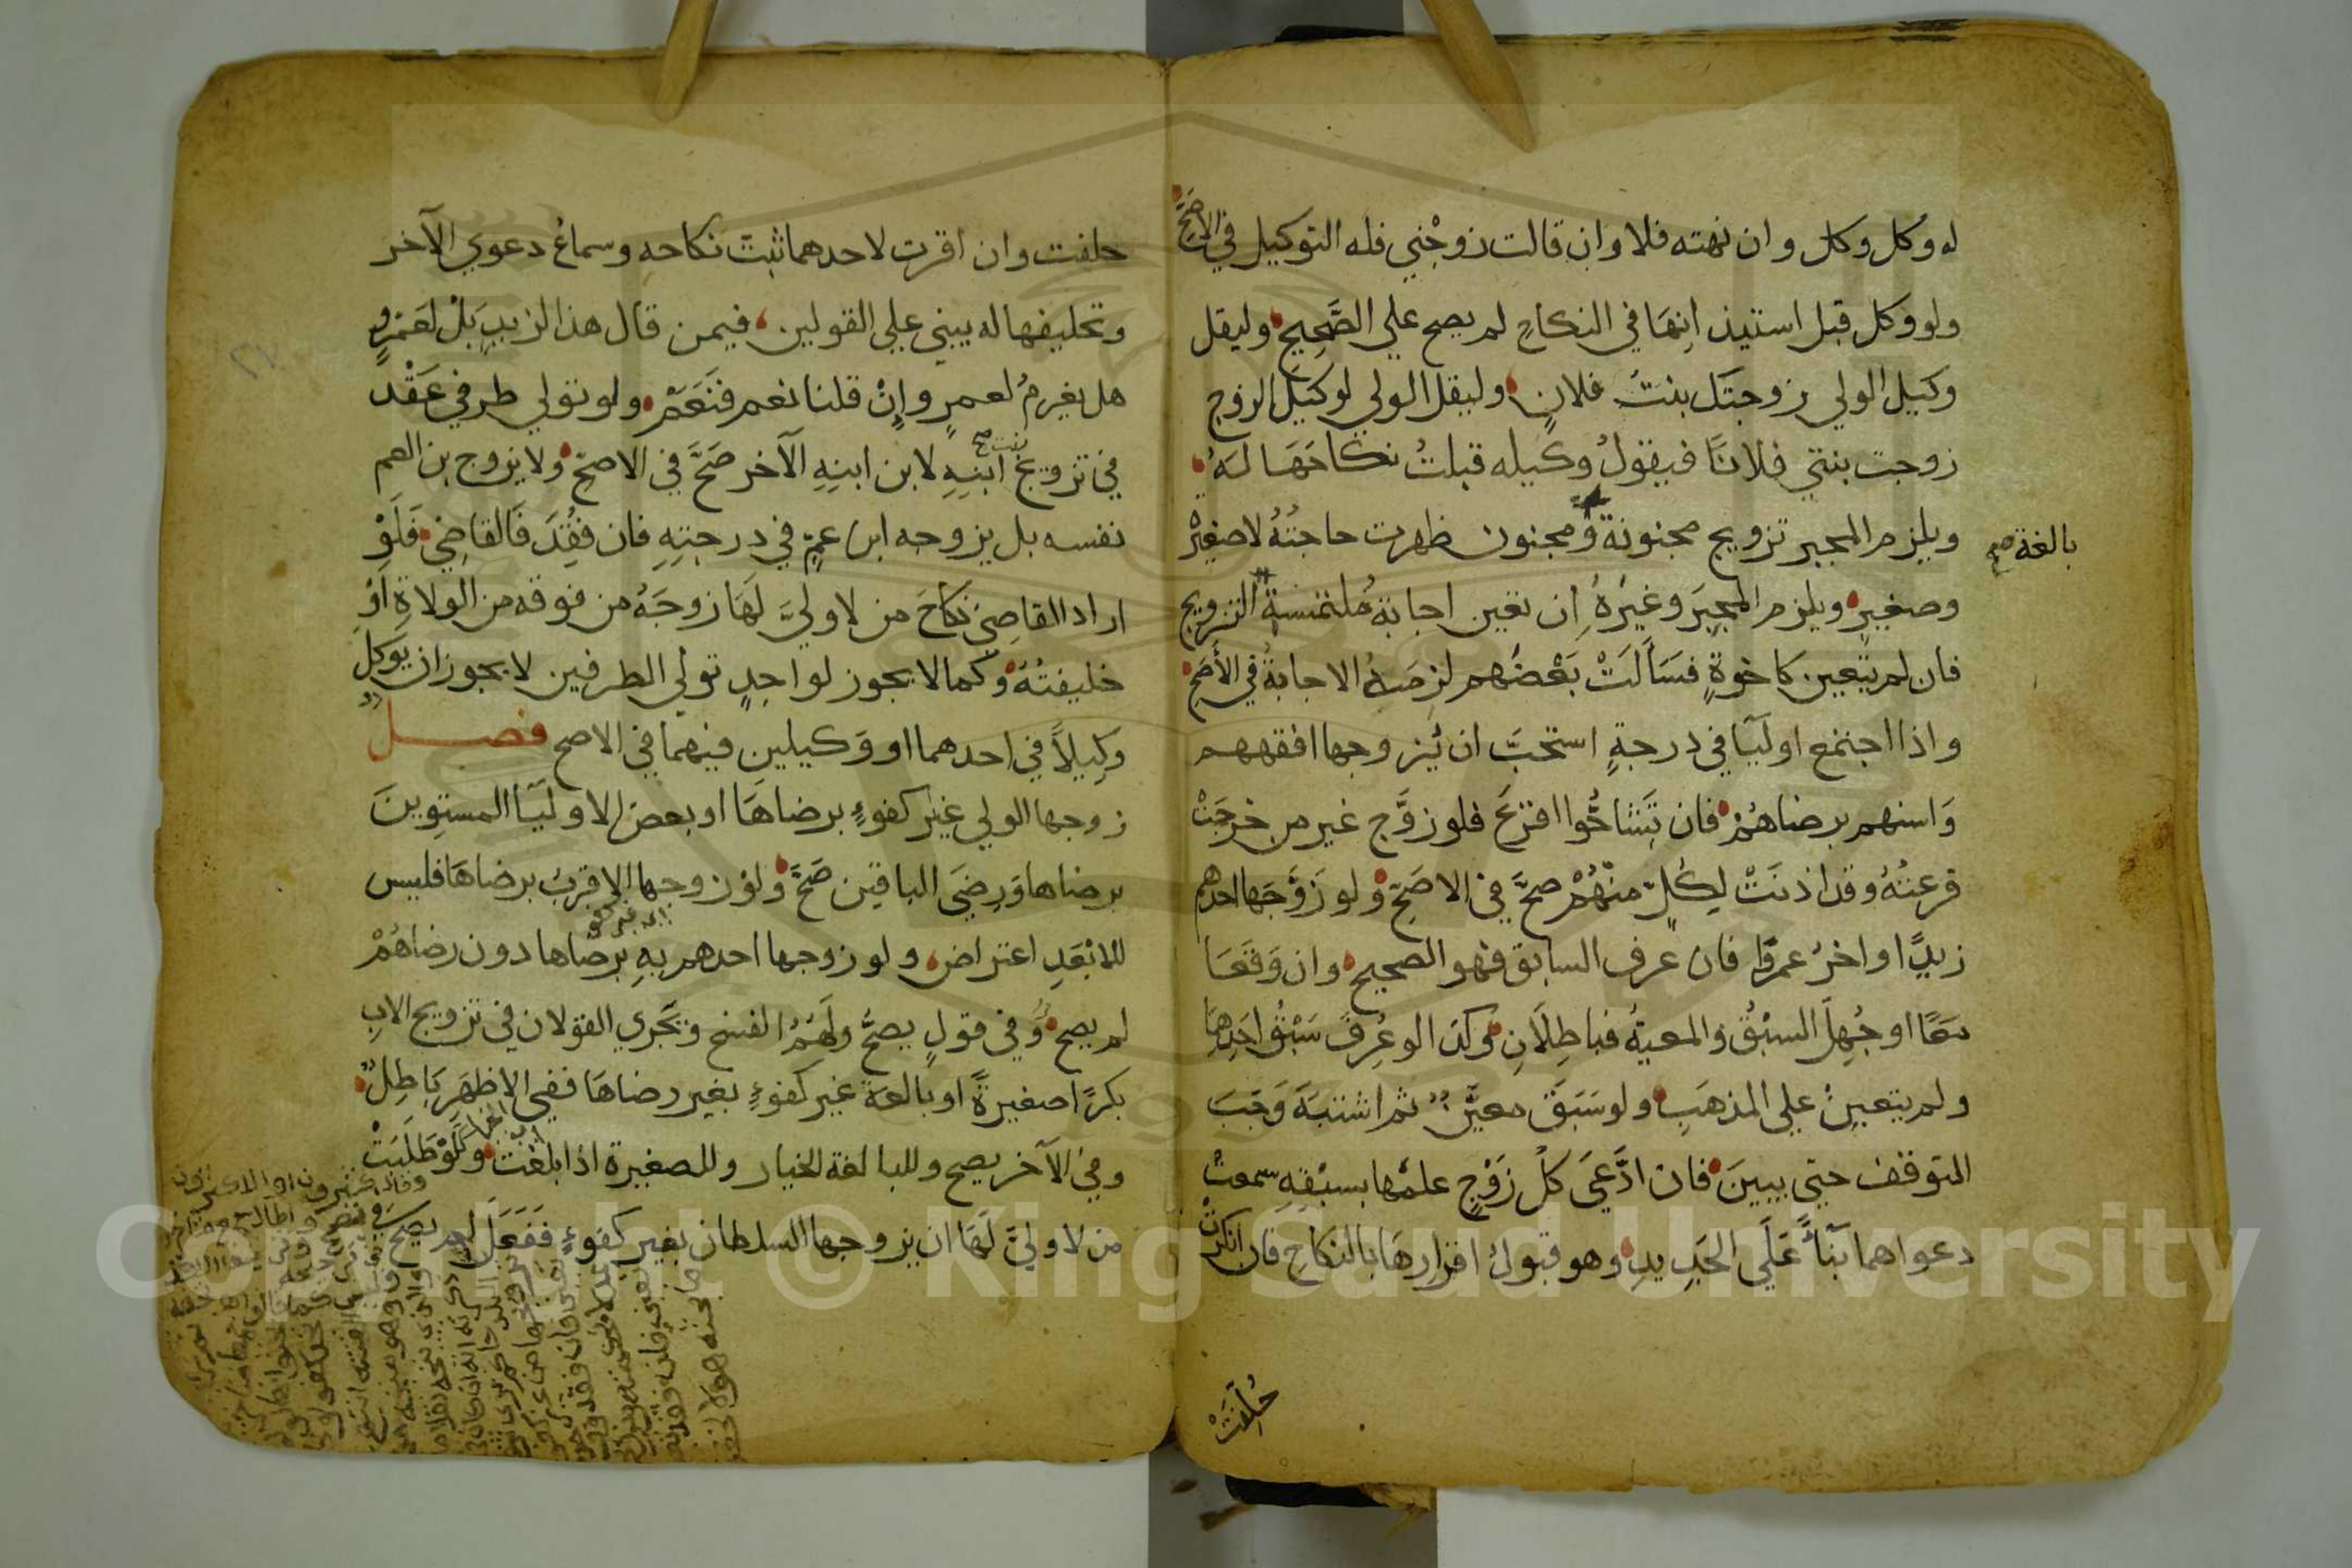 له وكل وكل وان نهته فلا وان قالت زوجني فله التوكيل في الاصح
ولو وكل قبل استيذانها في النكاح لم يصح علي الصحيح وليقل
وكيل الولي زوجتك بنت فلان وليقل الولي لوكيل الزوج
زوجت بنتي فلانا فيقول وكيله قبلت نكاحها له
ويلزم المجبر تزويج مجنونة ومجنون ظهرت حاجته لا صغيرة
بالغة صح
وصغير ويلزم المجبر وغيره ان تعين اجابة ملتمسة التزويج
فان لم يتعين كاخوة فسألت بعضهم لزمه الاجابة في الأصح
واذا اجتمع اوليا في درجة استحب ان يزوجها افقههم
واسنهم برضاهم فان تشاحوا اقرع فلو زوج غير من خرجت
قرعته وقد اذنت لكل منهم صح في الاصح ولو زوجها احدهم
زيدا واخر عمرا فان عرف السابق فهو الصحيح وان وقعا
معا او جهل السبق والمعية فباطلان وكذا لو عرف سبق احدهما
ولم يتعين علي المذهب ولو سبق معين ثم اشتبه وجب
التوقف حتي يبين فان ادعي كل زوج علمها بسبقه سمعت
دعواهما بناء علي الجديد وهو قبول اقرارها بالنكاح فان انكرت
حلفت
حلفت وان اقرت لاحدهما ثبت نكاحه وسماع دعوي الآخر
وتحليفها له يبني علي القولين فيمن قال هذا لزيد بل لعمرو
هل يغرم لعمرو وإن قلنا نعم فنعم ولو تولي طرفي عقد
في تزويج بنت صح ابنه لابن ابنه الآخر صح في الاصح ولا يزوج بن العم
نفسه بل يزوجه ابن عم في درجته فان فقد فالقاضي فلو
اراد القاضي نكاح من لا ولي لها زوجه من فوقه من الولاة او
خليفته وكما لا يجوز لواحد تولي الطرفين لا يجوز ان يوكل
وكيلا في احدهما او وكيلين فيهما في الاصح فصل
زوجها الولي غير كفوء برضاها او بعض الاوليا المستوين
برضاها ورضي الباقين صح ولو زوجها الاقرب برضاها فليس
للابعد اعتراض ولو زوجها احدهم به برضاها دون رضاهم
لم يصح وفي قول يصح ولهم الفسخ ويجري القولان في تزويج الاب
بكرا صغيرة او بالغة غير كفوء بغير رضاها ففي الاظهر باطل
وفي الآخر يصح وللبالغة الخيار وللصغيرة اذا بلغت ولو طلبت
من لا ولي لها ان يزوجها السلطان بغير كفوء ففعل لم يصح
Copyright © King Saud University